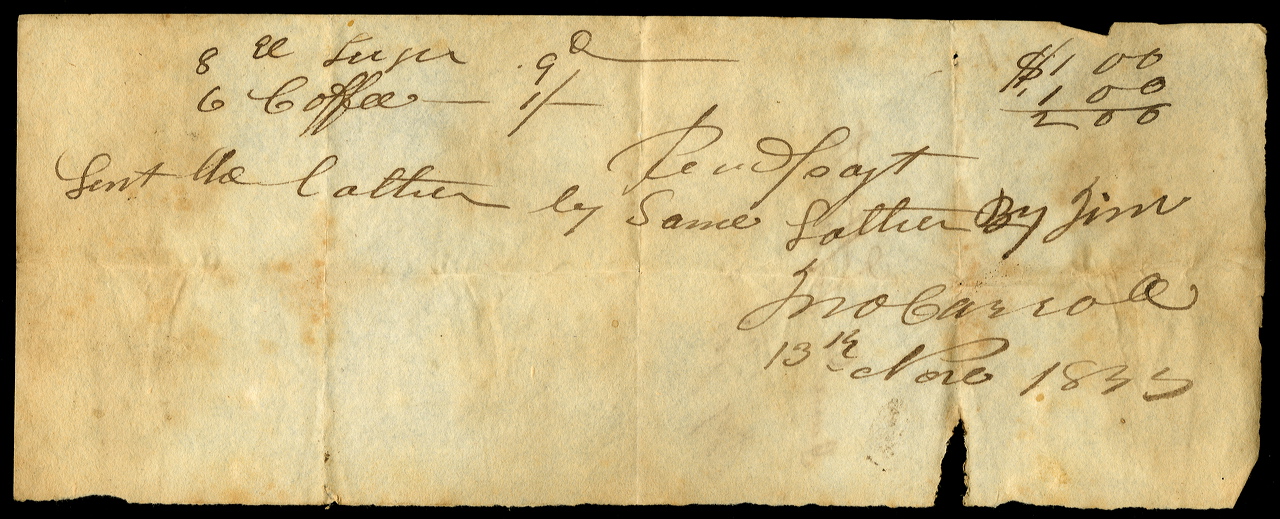 8 ll Sugar 9d $1 00
6 Coffee 1/- 1 00
2 00
Recd Payt
Sent the Cotten by Same Sotten By Jim
Jno Carroll
13th Nov 1833